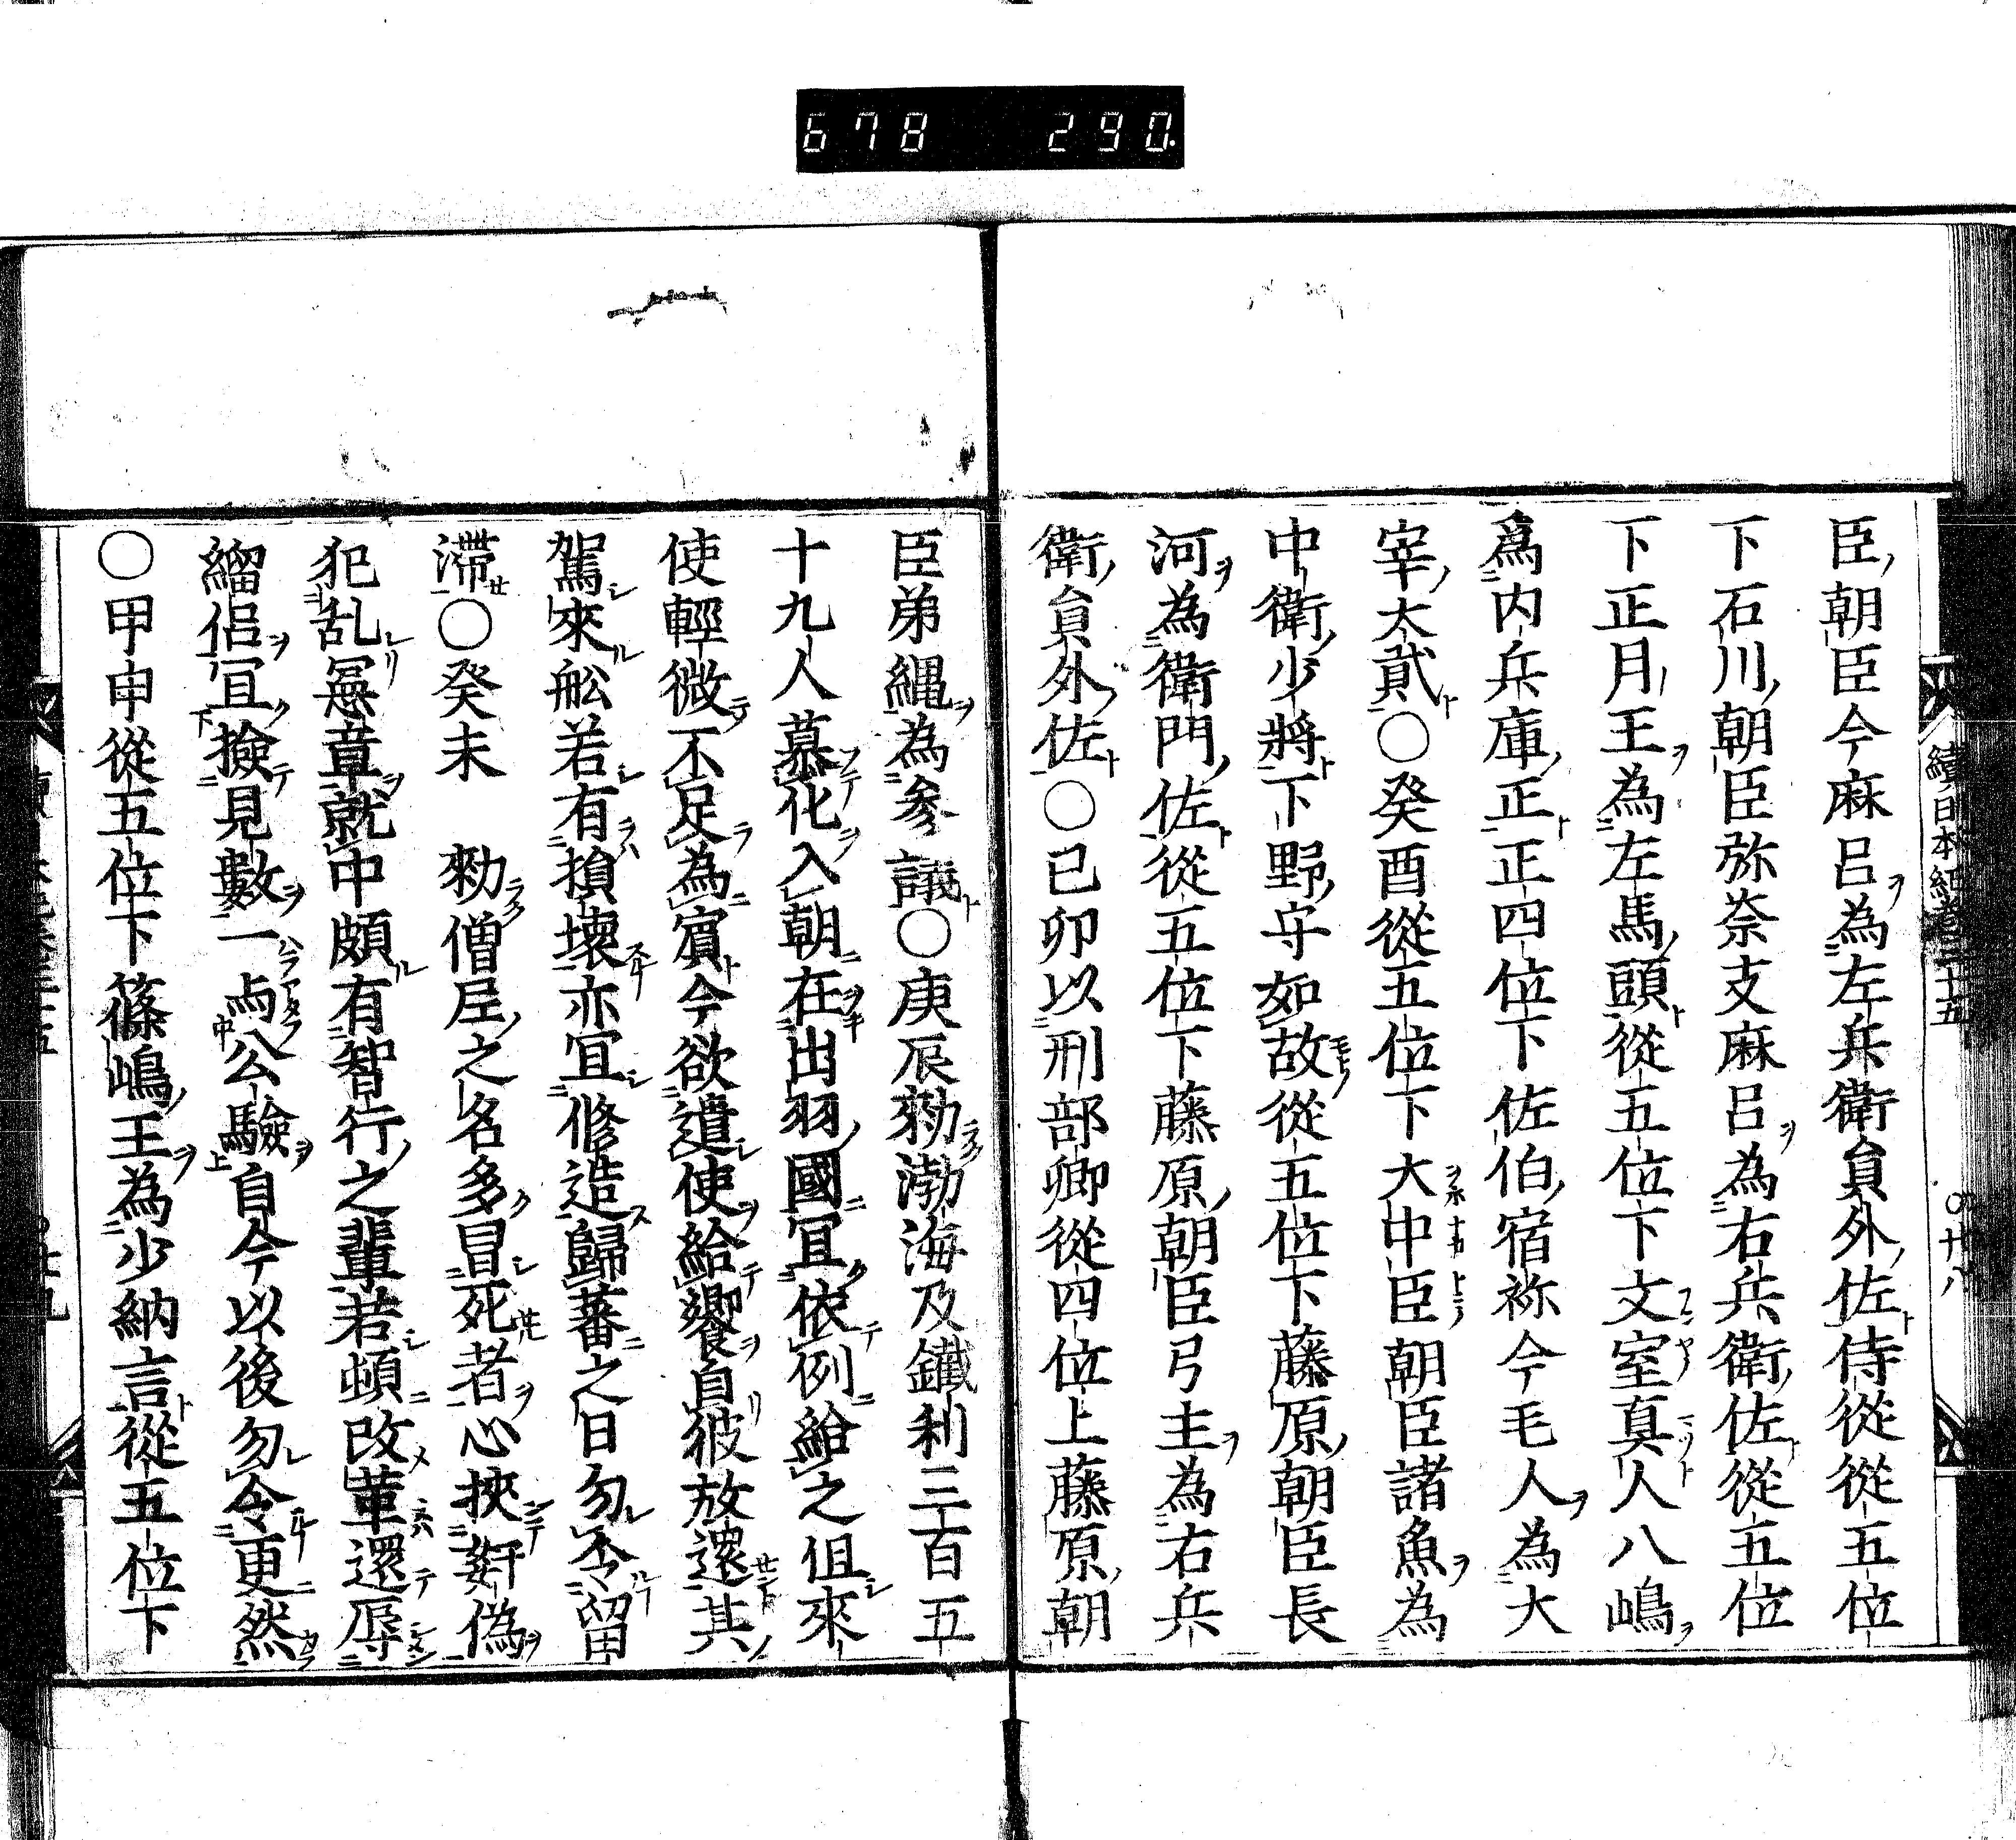 678 290
續日本紀卷三十五
〇廿八
臣朝臣今麻呂為左兵衛員外佐侍從從五位
下石川朝臣弥奈支麻呂為右兵衛佐從五位
下正月王為左馬頭從五位下文室真人八嶋
爲内兵庫正正四位下佐伯宿祢今毛人為大
宰大貳〇癸酉從五位下大中臣朝臣諸魚為
中衛少將下野守如故從五位下藤原朝臣長
河為衛門佐從五位下藤原朝臣弓主為右兵
衛員外佐〇己卯以刑部卿從四位上藤原朝
臣弟縄為参議〇庚辰勑渤海及鐵利三百五
十九人慕化入朝在出羽國冝依例給之但來
使輕微不足為賓今欲遣使給饗自彼放還其
駕來舩若有損壊亦冝修造歸蕃之日勿令留
滞〇癸未 勑僧尼之名多冒死者心挾姧偽
犯乱憲章就中頗有智行之輩若頓改革還辱
緇侶冝撿見數一与公驗自今以後勿令更然
〇甲申從五位下篠嶋王為少納言從五位下